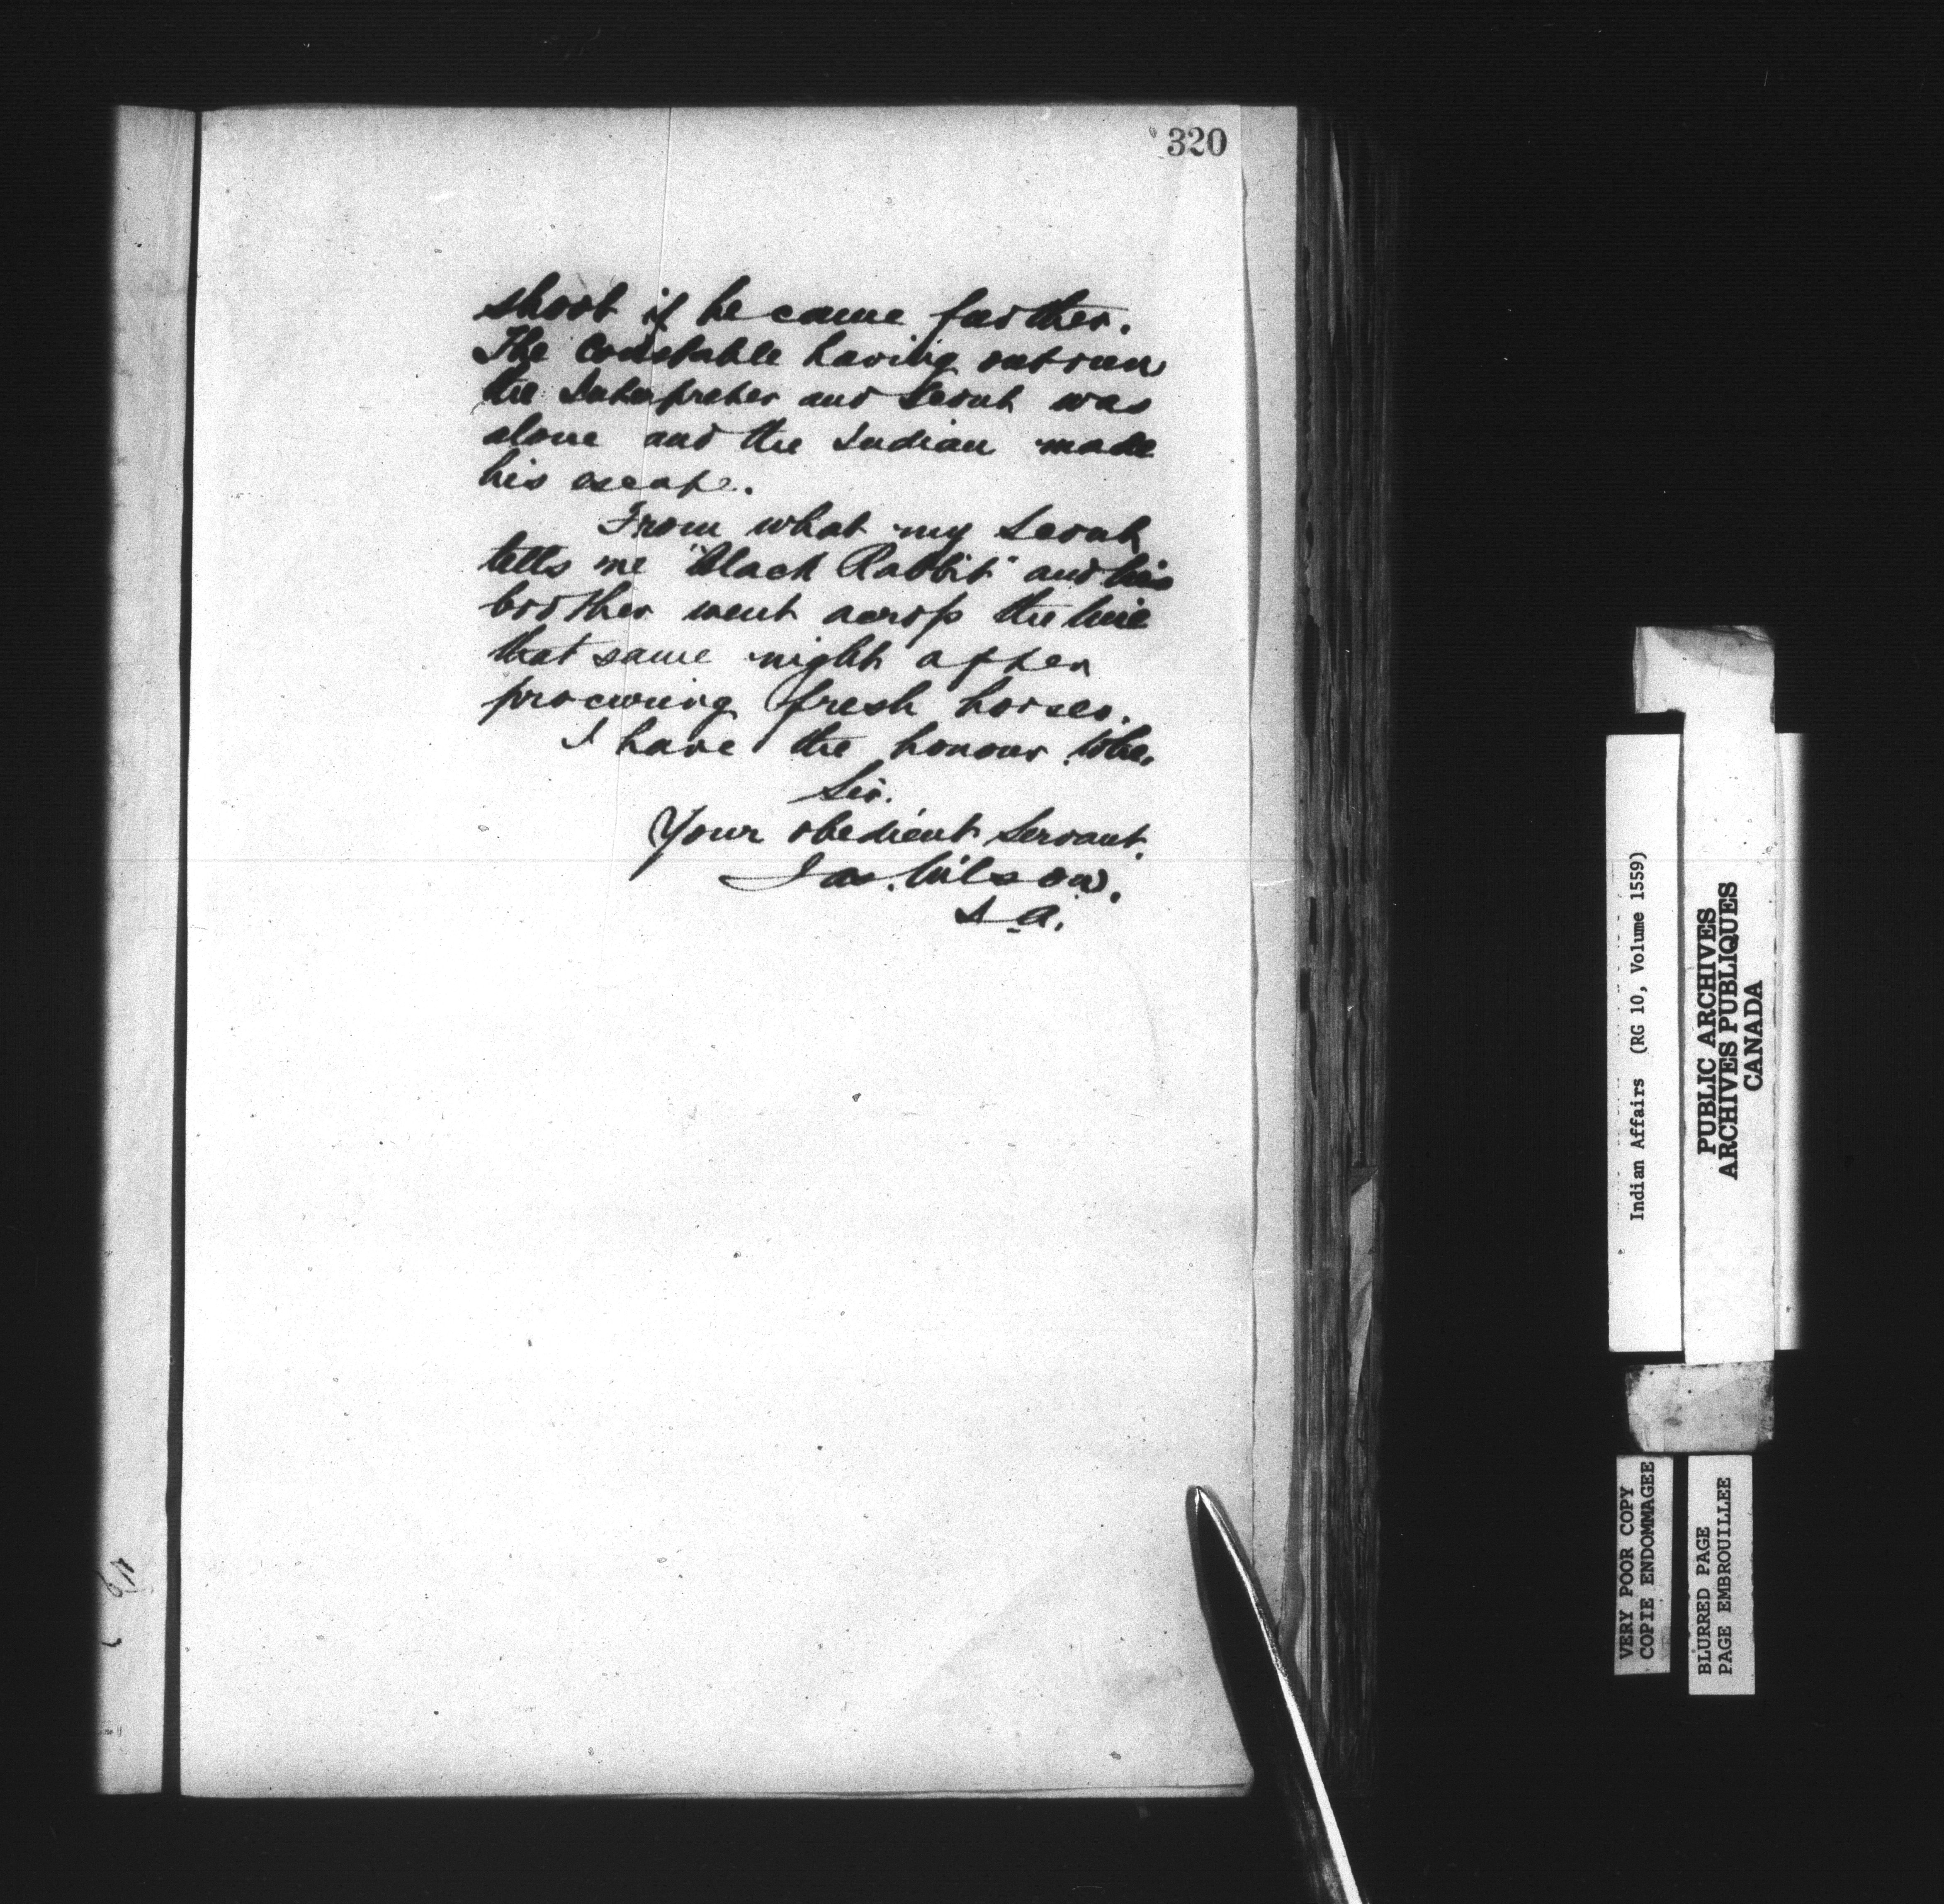 320
shoot if he came further.
The Constable having outrun
the Interpreter and Scout was
alone and the Indian made
his escape.
From what my Scout
tells me "Black Rabbit" and his
brother went across the line
that same night after
procuring fresh horses.
I have the honour to be,
Sir.
Your obedient Servant.
Jas. Wilson.
I.A.
Indian Affairs (RG 10, Volume 1559)
PUBLIC ARCHIVES
ARCHIVES PUBLIQUES
CANADA
VERY POOR COPY
COPIE ENDOMMAGEE
BLURRED PAGE
PAGE EMBROUILLEE